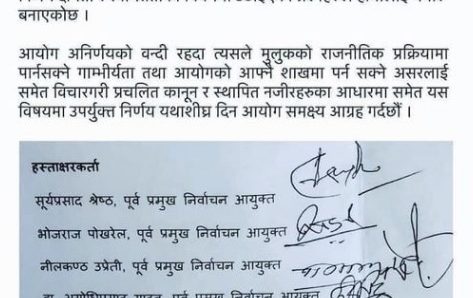 बनाएकोछ ।
आयोग अनिर्णयको वन्दी रहदा त्यसले मुलुकको राजनीतिक प्रक्रियामा
पार्नसक्ने गाम्भीर्यता तथा आयोगको आफ्नै शाखमा पर्न सक्ने असरलाई
समेत विचारगरी प्रचलित कानून र स्थापित नजीरहरुका आधारमा समेत यस
विषयमा उपर्युक्त निर्णय यथाशीघ्र दिन आयोग समक्ष्य आग्रह गर्दछौँ ।
हस्ताक्षरकर्ता
सूर्यप्रसाद श्रेष्ठ, पूर्व प्रमुख निर्वाचन आयुक्त
भोजराज पोखरेल, पूर्व प्रमुख निर्वाचन आयुक्त
नीलकण्ठ उप्रेती, पूर्व प्रमुख निर्वाचन आयुक्त